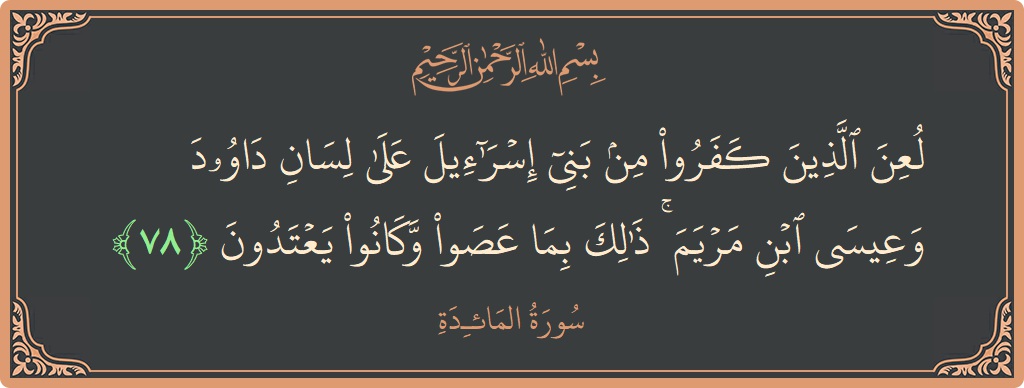 بِسْمِ اللهِ الرَّحْمٰنِ الرَّحِيْمِ
لُعِنَ ٱلَّذِينَ كَفَرُوا۟ مِنۢ بَنِىٓ إِسْرَٰٓءِيلَ عَلَىٰ لِسَانِ دَاوُۥدَ
وَعِيسَى ٱبْنِ مَرْيَمَ ۚ ذَٰلِكَ بِمَا عَصَوا۟ وَّكَانُوا۟ يَعْتَدُونَ ﴿٧٨﴾
سُورَةُ المَائـِدَةِ